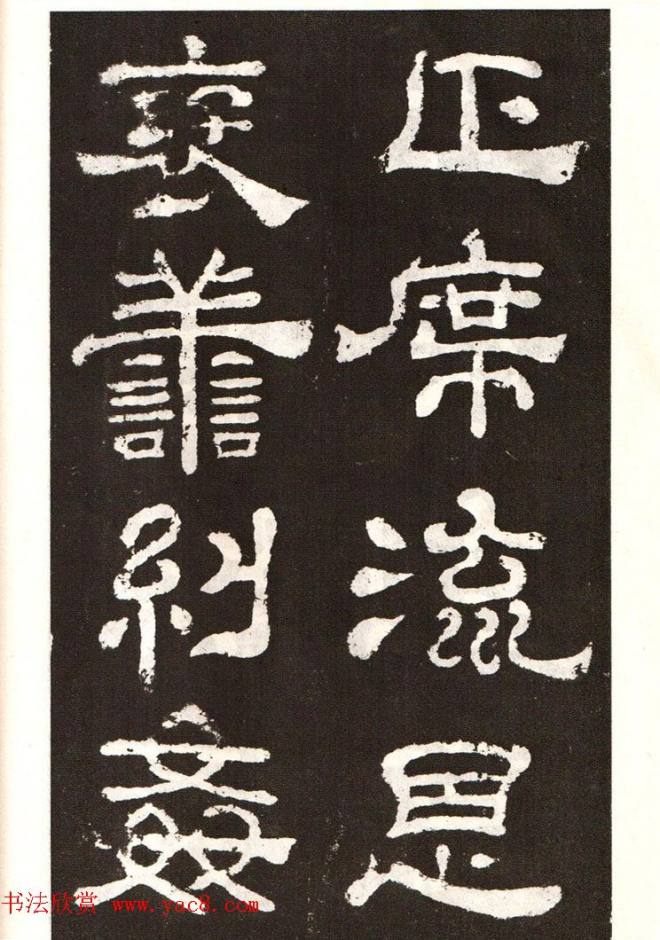 正席流恩
褒譱糾姦
书法欣赏 www.yac8.com